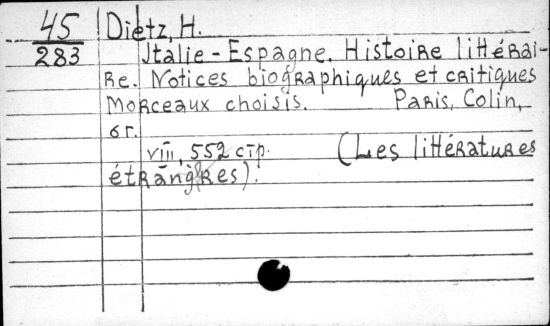 45
283
Dietz, H.
Italie - Espagne. Histoire littérai-
re. Notices biographiques et critiques
Morceaux choisis. Paris, Colin,
б г.
VIII, 552 стр. (Les littératures
étrangères).